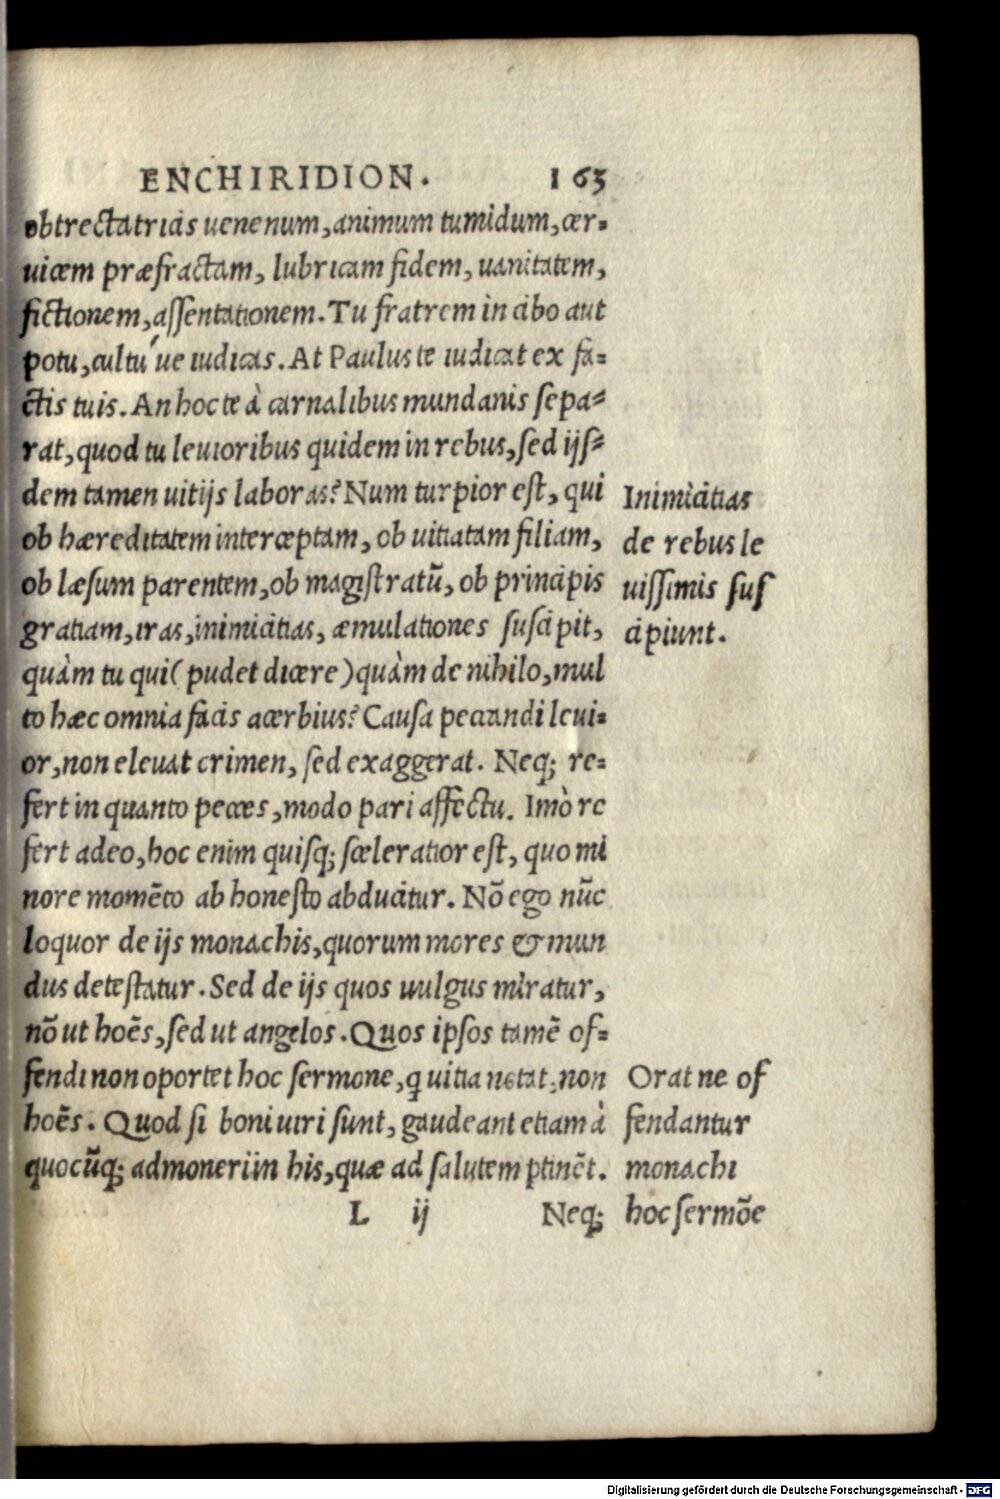 ENCHIRIDION. 163
obtrectatricis uenenum, animum tumidum, cer-
uicem præfractam, lubricam fidem, uanitatem,
fictionem, assentationem. Tu fratrem in cibo aut
potu, cultú ue iudicas. At Paulus te iudicat ex fa-
ctis tuis. An hoc te à carnalibus mundanis sepa-
rat, quod tu leuioribus quidem in rebus, sed ijs-
dem tamen uitijs laboras? Num turpior est, qui
ob hæreditatem interceptam, ob uitiatam filiam,
ob læsum parentem, ob magistratũ, ob principis
gratiam, iras, inimicitias, æmulationes suscipit,
quàm tu qui (pudet dicere) quàm de nihilo, mul
to hæc omnia facis acerbius? Causa peccandi leui-
or, non eleuat crimen, sed exaggerat. Neq; re-
fert in quanto pecces, modo pari affectu. Imò re
fert adeo, hoc enim quisq; sceleratior est, quo mi
nore momẽto ab honesto abducitur. Nõ ego nũc
loquor de ijs monachis, quorum mores & mun
dus detestatur. Sed de ijs quos uulgus miratur,
nõ ut hoẽs, sed ut angelos. Quos ipsos tamẽ of-
fendi non oportet hoc sermone, q uitia notat, non
hoẽs. Quod si boni uiri sunt, gaudeant etiam à
quocũq; admoneri in his, quæ ad salutem ptinẽt.
L ij Neq;
Inimicitias
de rebus le
uissimis sus
cipiunt.
Orat ne of
fendantur
monachi
hoc sermõe
Digitalisierung gefördert durch die Deutsche Forschungsgemeinschaft - DFG